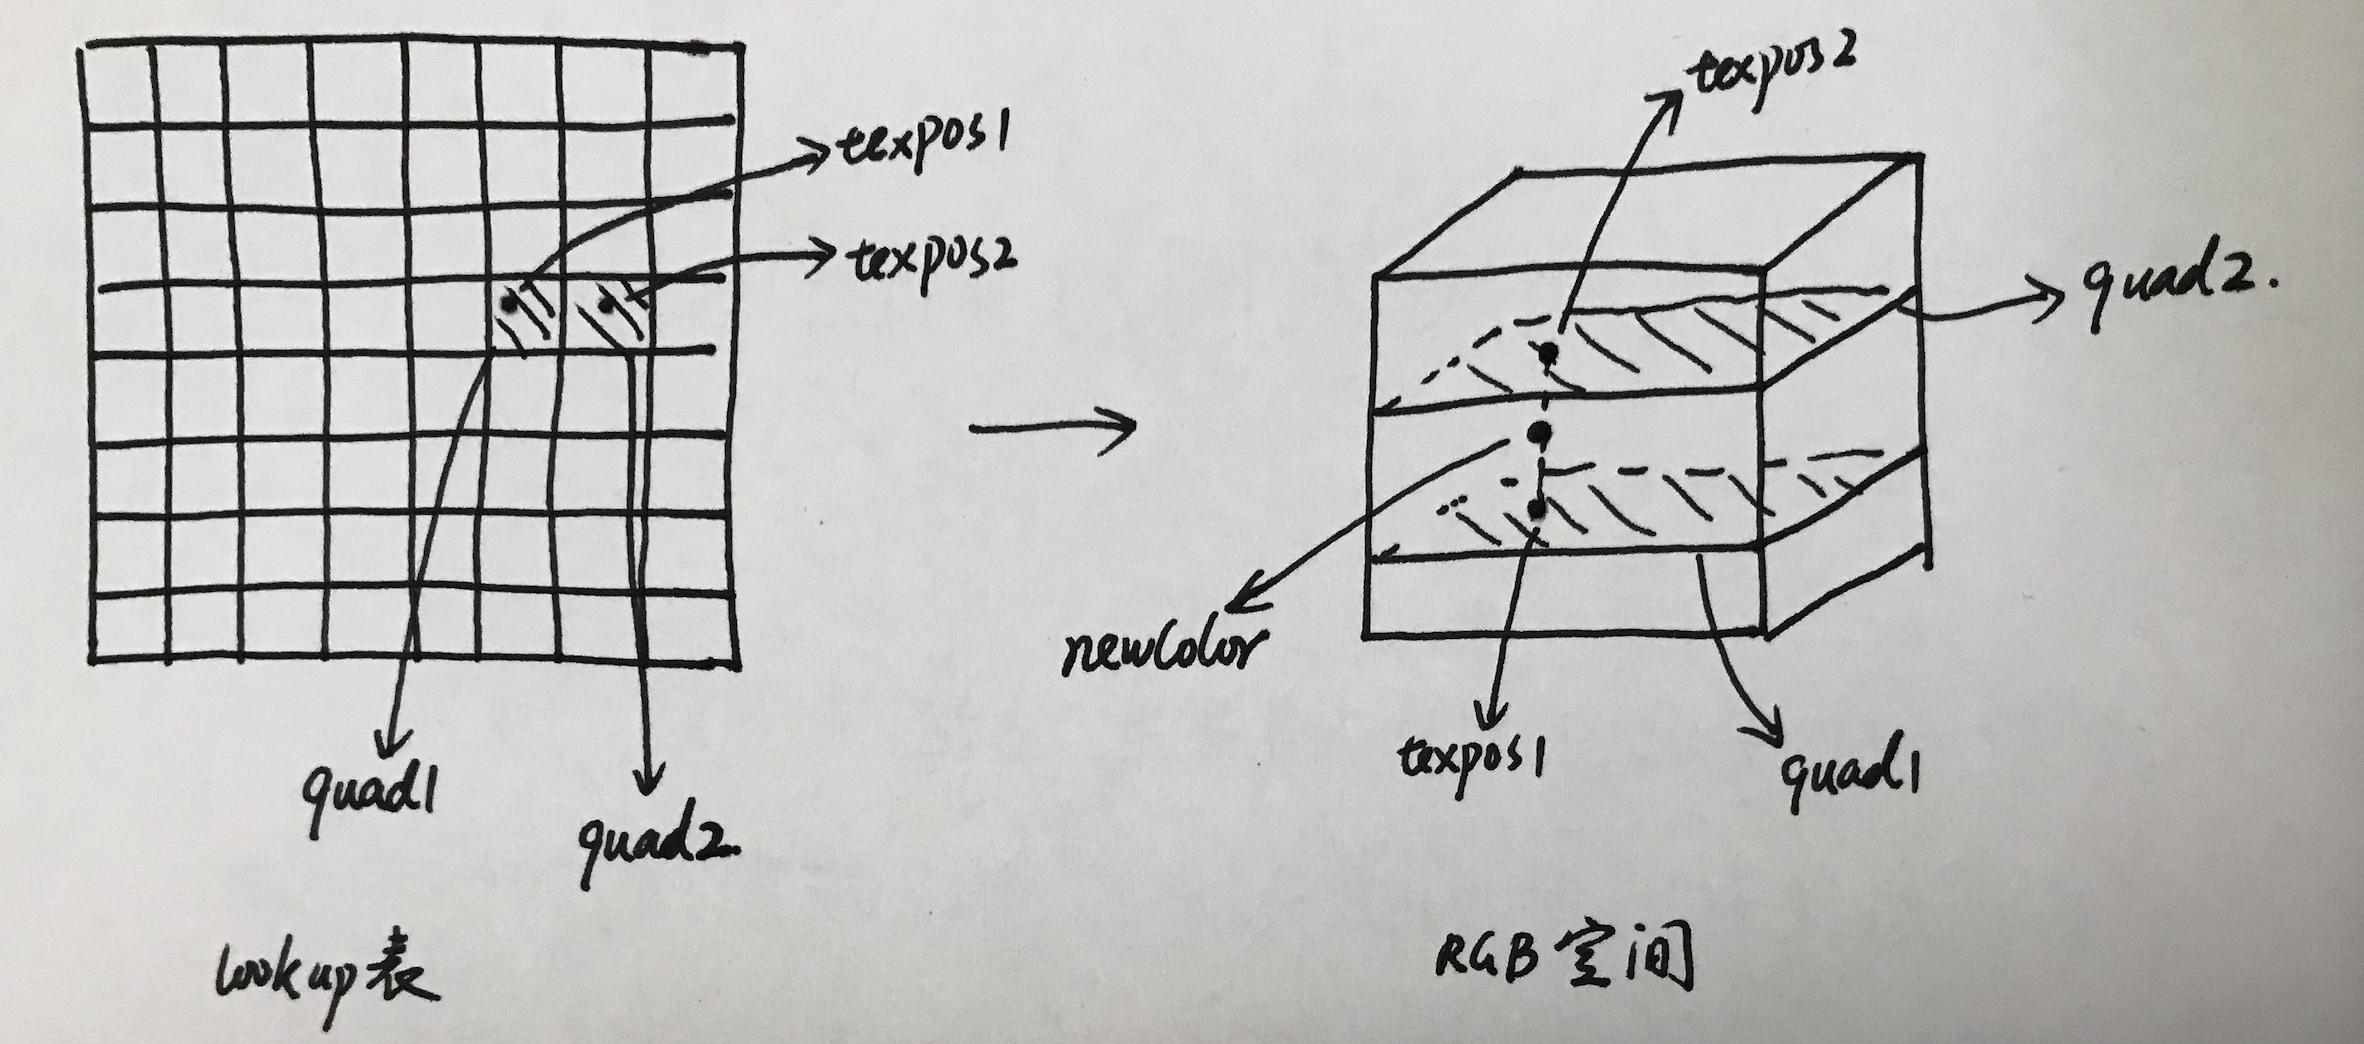 texpos1
texpos2
quad1
quad2.
lookup表
texpos2
quad2.
newColor
texpos1
quad1
RGB空间